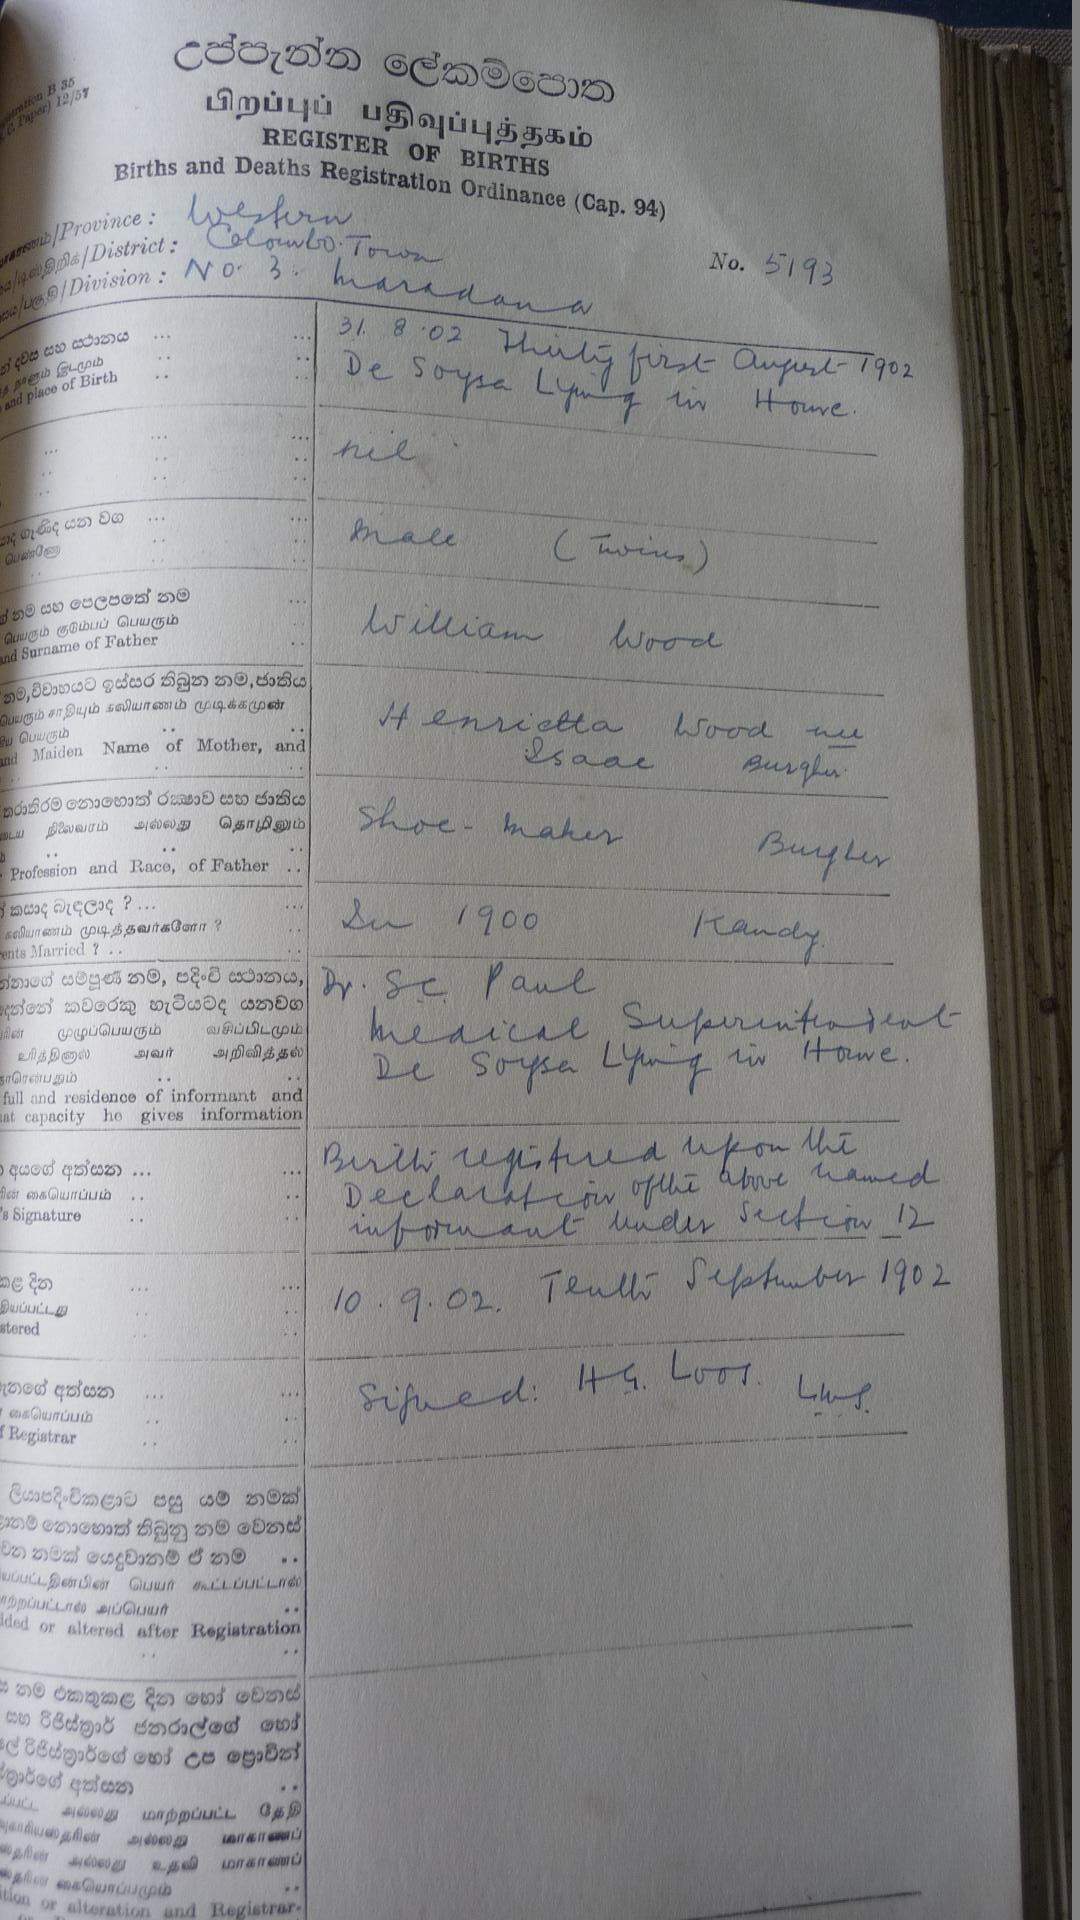 උප්පැන්න ලේකම්පොත
பிறப்புப் பதிவுப்புத்தகம்
REGISTER OF BIRTHS
Births and Deaths Registration Ordinance (Cap. 94)
B 35
Paper) 12/57
/Province : Western
/District : Colombo Town
/Division : No. 3. Maradana
No. 5193
දවස සහ ස්ථානය
நாளும் இடமும்
and place of Birth
31. 8 .02 Thirty first August 1902
De Soysa Lying in Home.
nil
ගැණිද යන වග
Male (Twins)
නම සහ පෙලපතේ නම
பெயரும் குடும்பப் பெயரும்
and Surname of Father
William Wood
නම, විවාහයට ඉස්සර තිබුන නම, ජාතිය
பெயரும் சாதியும் கலியாணம் முடிக்கமுன்
பெயரும்
Maiden Name of Mother, and
Henrietta Wood nee
Isaac Burgher
තරාතිරම නොහොත් රක්ෂාව සහ ජාතිය
நிலைவரம் அல்லது தொழிலும்
Profession and Race, of Father
Shoe-maker Burgher
කසාද බැඳලාද ? ...
கலியாணம் முடித்தவர்களோ ?
ents Married ? ..
In 1900 Kandy.
සම්පූණී නම, පදිංචි ස්ථානය,
කවරෙකු හැටියටද යනවග
முழுப்பெயரும் வசிப்பிடமும்
அவர் அறிவித்தல்
full and residence of informant and
capacity he gives information
Dr. S.C. Paul
Medical Superintendent
De Soysa Lying in Home.
අයගේ අත්සන ...
கையொப்பம்
's Signature
Birth registered upon the
Declaration of the above named
informant under Section 12
කළ දින
stered
10 . 9 . 02. Tenth September 1902
අත්සන
கையொப்பம்
Registrar
Signed: H.G. Loos. LMS.
ලියාපදිංචිකළාට පසු යම් නමක්
නොහොත් තිබුනු නම වෙනස්
නමක් යෙදුවානම් ඒ නම
பெயர் கூட்டப்பட்டால்
அப்பெயர்
ded or altered after Registration
නම එකතුකළ දින හෝ වෙනස්
සහ රිජිස්ත්‍රාර් ජනරාල්ගේ හෝ
රිජිස්ත්‍රාර්ගේ හෝ උප ප්‍රොවින්
අත්සන
அல்லது மாற்றப்பட்ட தேதி
அல்லது மாகாணப்
அல்லது உதவி மாகாணப்
கையொப்பமும்
tion or alteration and Registrar-